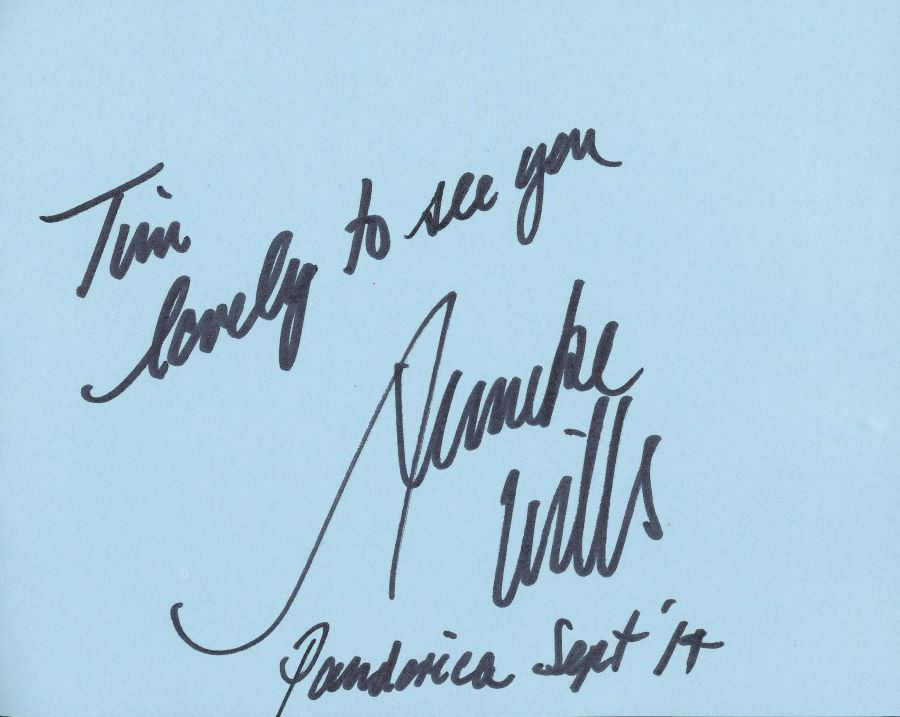 Tim
lovely to see you
Anneke
Wills
Pandorica Sept '14